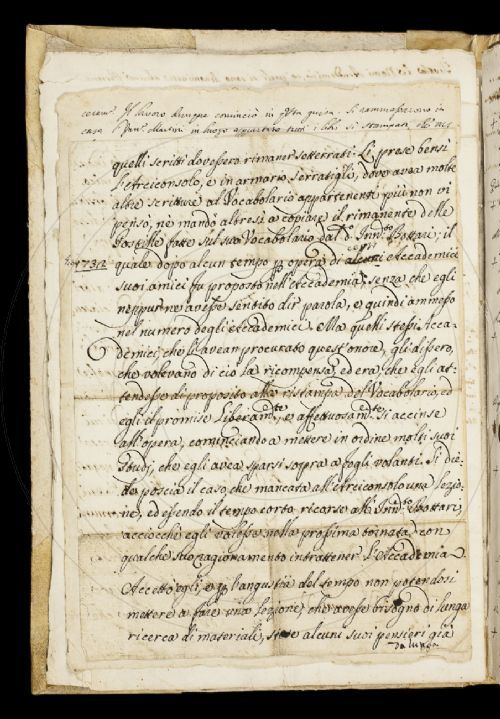 cerem. Il lavoro dunque cominciò in questa guisa. Si rammassorono in
casa Martini in luogo appartato tutti i libri si stampati, che mi
quelli scritti dovessero rimaner sotterrati: Li prese bensì
l'Arciconsolo, e in armario serratigli, dove avea molte
altre scritture al Vocabolario appartenenti più non vi
pensò, ne mandò altresì a copiare il rimanente delle
Postille fatte sul suo Vocabolario dal d.o Inn.to Bottari; il
quale dopo alcun tempo p opera di alcuni Accademici
suoi amici fu proposto nell'Accademia, senza che egli
neppur ne avesse sentito dir parola, e quindi ammesso
nel numero degli Accademici. Ma quelli stessi Acca-
demici, che li avean procurato quest'onore, gli dissero,
che volevano di ciò la ricompensa, ed era, che egli at-
tendesse di proposito alla ristampa del Vocabolario, ed
egli il promise Liberam.te, e affettuosam.te Si accinse
all'opera, cominciando a mettere in ordine molti suoi
studj, che egli avea sparsi sopra a fogli volanti. Si die-
de poscia il caso, che mancata all'Arciconsolo una lezio-
ne, ed essendo il tempo corto ricorse all'Inn.to Bottari,
acciocchè egli volesse nella prossima tornata con
qualche suo ragionamento intrattener l'Accademia.
Accettò egli, e p l'angustia del tempo non potendosi
mettere a fare una lezione, che avesse bisogno di lunga
ricerca di materiali, stese alcuni suoi pensieri già
da lunga